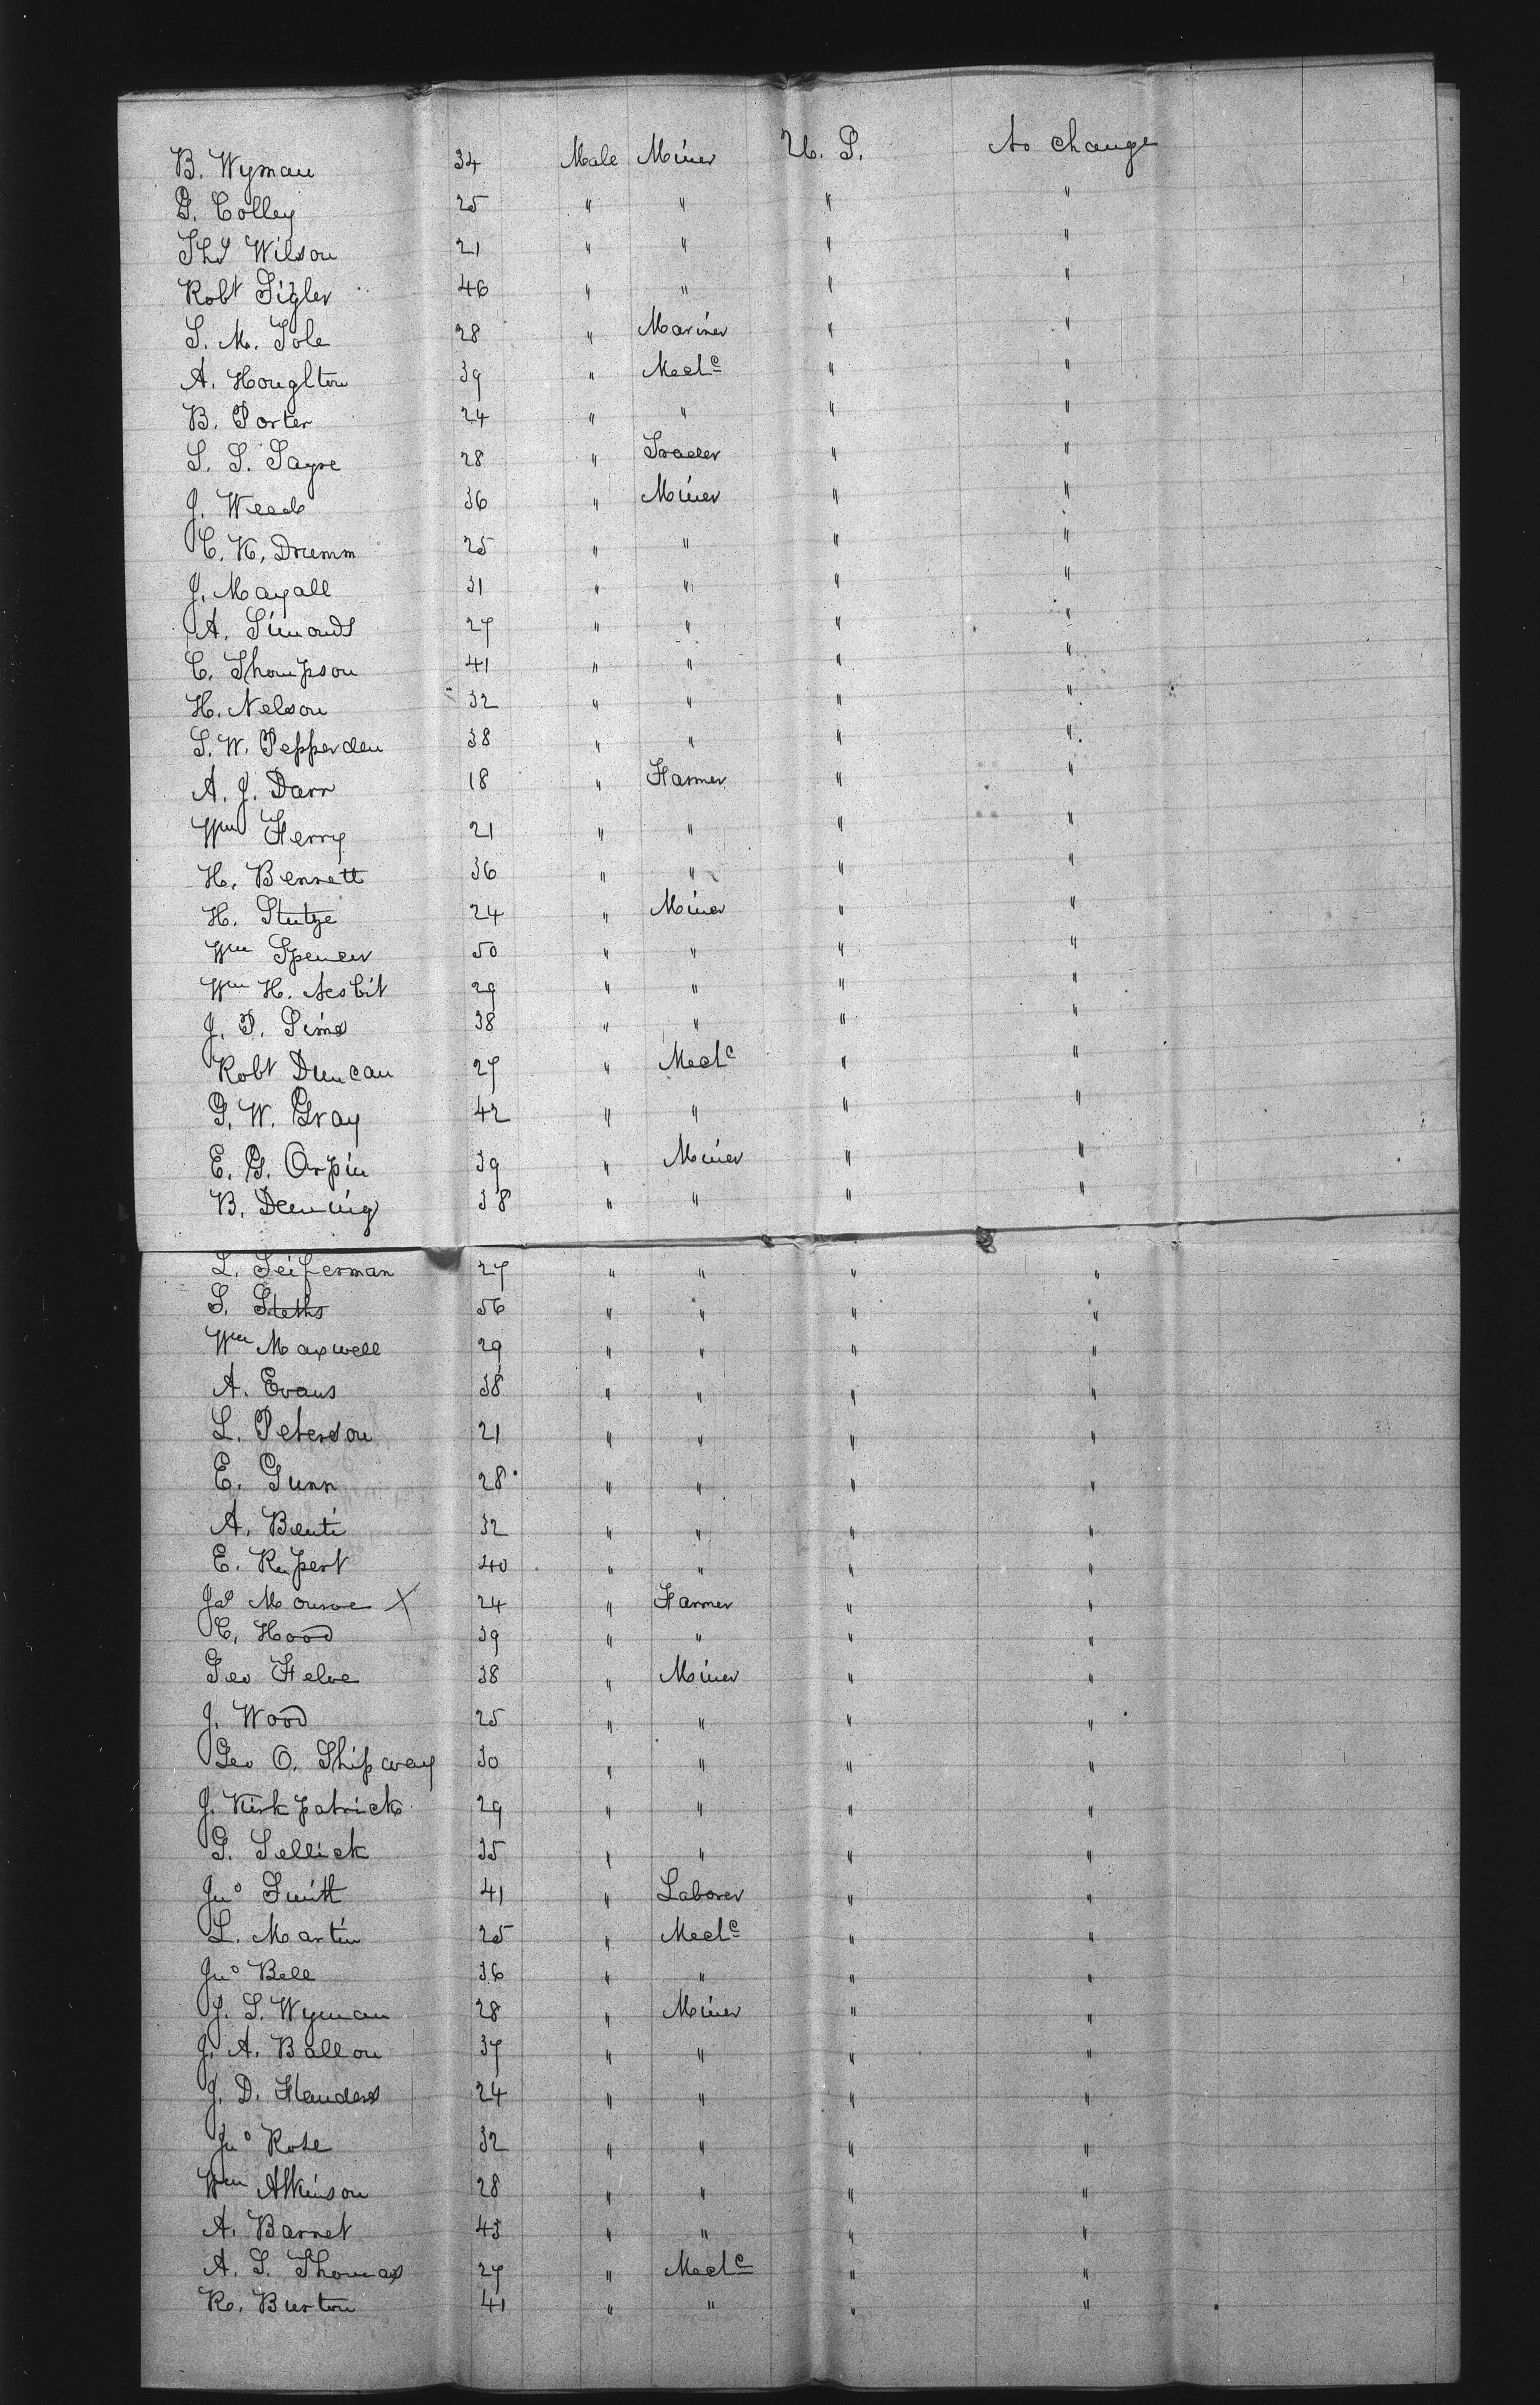 B. Wyman 34 Male Miner U. S. No change
G. Colley 25 " " " "
Thos Wilson 21 " " " "
Robt Sigler 46 " " " "
S. M. Sole 28 " Mariner " "
A. Houghton 39 " Mechc " "
B. Porter 24 " " " "
S. S. Sayre 28 " Trader " "
J. Weed 36 " Miner " "
C. K. Drumm 25 " " " "
J. Mayall 31 " " " "
A. Simonds 27 " " " "
C. Thompson 41 " " " "
H. Nelson 32 " " " "
S. W. Pepperden 38 " " " "
A. J. Darr 18 " Farmer " "
Wm Ferry 21 " " " "
H. Bennett 36 " " " "
H. Stutze 24 " Miner " "
Wm Spencer 50 " " " "
Wm H. Nesbit 29 " " " "
J. P. Sims 38 " " " "
Robt Duncan 27 " Mechc " "
G. W. Gray 42 " " " "
E. G. Orpin 39 " Miner " "
B. Deming 38 " " " "
L. Seiferman 27 " " " "
S. 56 " " " "
Wm Maxwell 29 " " " "
A. Evans 38 " " " "
L. Peterson 21 " " " "
E. Gunn 28 " " " "
A. 32 " " " "
E. Rupert 40 " " " "
Jas Monroe X 24 " Farmer " "
C. Hood 39 " " " "
Geo 38 " Miner " "
J. Wood 25 " " " "
Geo O. Shipway 30 " " " "
J. Kirkpatrick 29 " " " "
G. Sellick 35 " " " "
Jno Smith 41 " Laborer " "
L. Martin 25 " Mechc " "
Jno Bell 36 " " " "
J. S. Wyman 28 " Miner " "
J. A. Ballou 37 " " " "
J. D. Flanders 24 " " " "
Jno Rose 32 " " " "
Wm Atkinson 28 " " " "
A. Barnet 43 " " " "
A. S. Thomas 27 " Mechc " "
R. Burton 41 " " " "